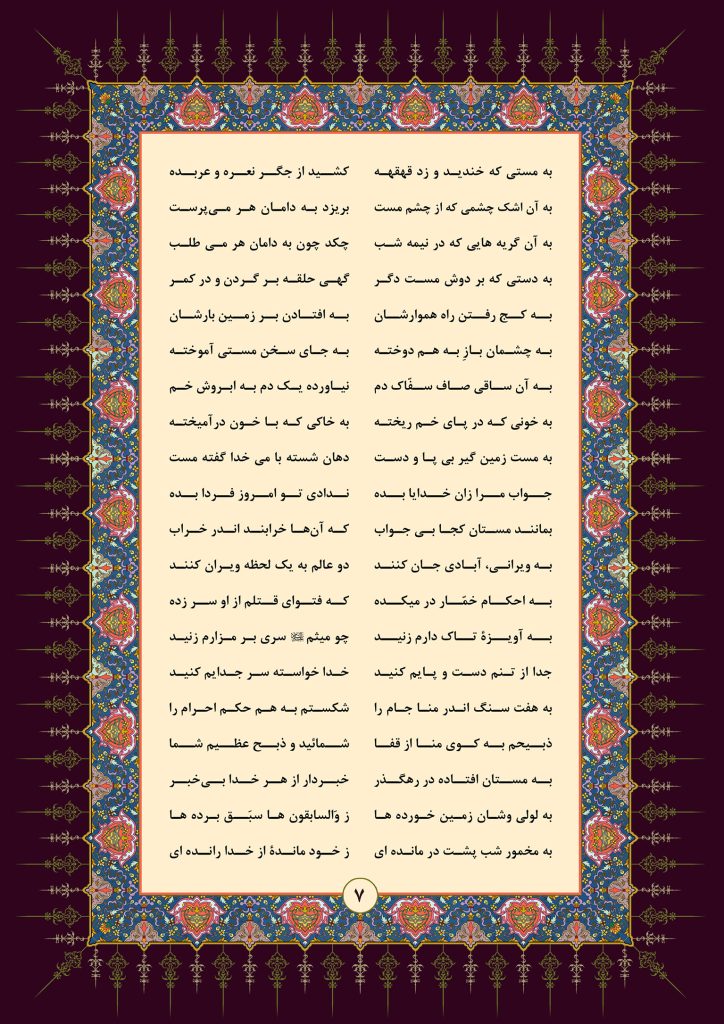 به مستی که خندیـد و زد قهقهـه کشـید از جگـر نعـره و عربـده
به آن اشک چشمی که از چشم مست بریزد بـه دامـان هـر مـی‌پرسـت
به آن گریه هایی که در نیمه شـب چکد چون به دامان هر مـی طلـب
به دستی که بر دوش مسـت دگـر گهـی حلقـه بـر گـردن و در کمـر
بـه کـج رفـتن راه هموارشـان بـه افتـادن بـر زمـین بارشـان
بـه چشـمان بـازِ بـه هـم دوختـه بـه جـای سـخن مسـتی آموختـه
بـه آن سـاقی صـاف سـفّاک دم نیـاورده یـک دم بـه ابـروش خـم
به خونی کـه در پـای خـم ریختـه به خاکی کـه بـا خـون درآمیختـه
به مست زمین گیر بی پـا و دسـت دهان شسته با می خدا گفته مست
جـواب مـرا زان خـدایا بـده نـدادی تـو امـروز فـردا بـده
بماننـد مسـتان کجـا بـی جـواب کـه آن‌هـا خرابنـد انـدر خـراب
بـه ویرانـی، آبـادی جـان کننـد دو عالم به یک لحظه ویـران کننـد
بـه احکـام خمّـار در میکـده کـه فتـوای قـتلم از او سـر زده
بـه آویـزهٔ تـاک دارم زنیـد چو میثم ﷺ سری بـر مـزارم زنیـد
جدا از تـنم دسـت و پـایم کنیـد خدا خواسـته سـر جـدایم کنیـد
به هفت سـنگ انـدر منـا جـام را شکسـتم بـه هـم حکـم احـرام را
ذبـیحم بـه کـوی منـا از قفـا شـمائید و ذبـح عظـیم شـما
بـه مسـتان افتـاده در رهگـذر خبـردار از هـر خـدا بـی‌خبـر
به لولی وشـان زمـین خـورده هـا ز وَالسابقون هـا سبَـق بـرده هـا
به مخمور شب پشـت در مانـده ای ز خـود مانـدهٔ از خـدا رانـده ای
۷